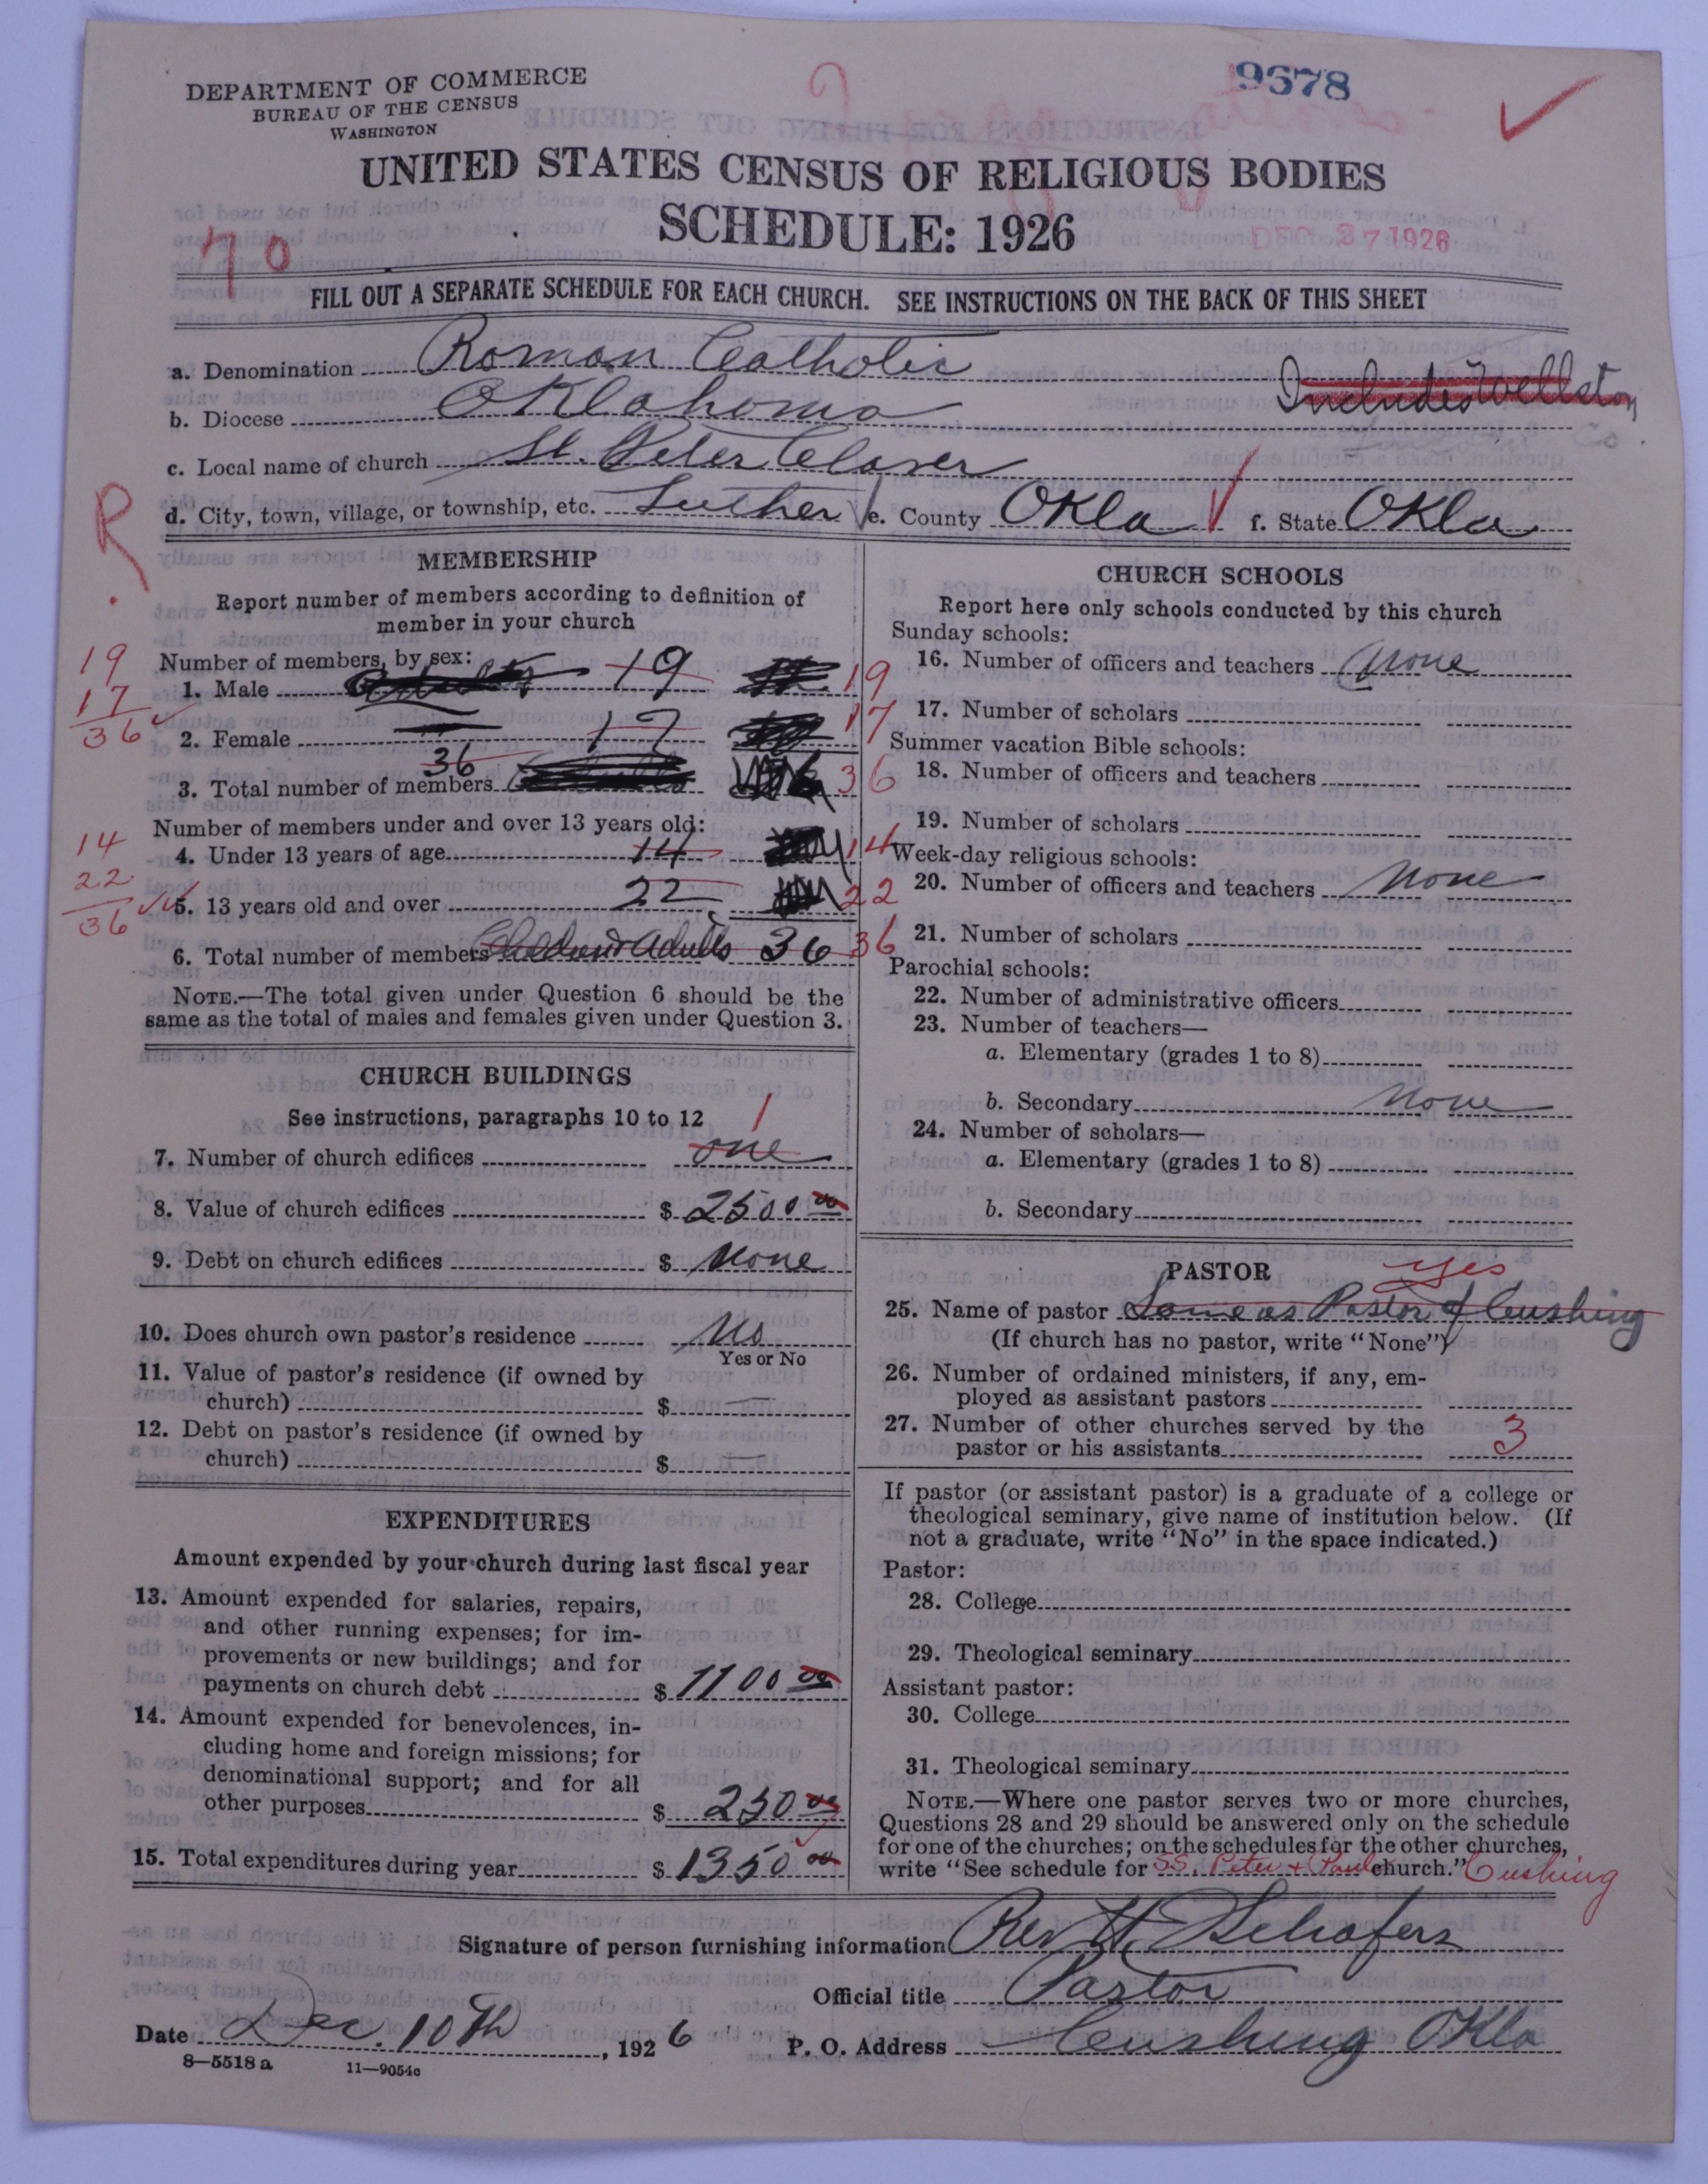 9678
DEPARTMENT OF COMMERCE
BUREAU OF THE CENSUS
WASHINGTON
UNITED STATES CENSUS OF RELIGIOUS BODIES
SCHEDULE: 1926
DEC 27 1926
70
FILL OUT A SEPARATE SCHEDULE FOR EACH CHURCH. SEE INSTRUCTIONS ON THE BACK OF THIS SHEET
a. Denomination Roman Catholic
Includes Wellston
b. Diocese Oklahoma
Co.
c. Local name of church St. Peter Claver
d. City, town, village, or township, etc. Luther e. County Okla f. State Okla
R
MEMBERSHIP
Report number of members according to definition of
member in your church
Number of members, by sex:
19
1. Male 19 19
17
2. Female 17 17
36
3. Total number of members 36 36
Number of members under and over 13 years old:
14
4. Under 13 years of age 14 14
22
5. 13 years old and over 22 22
36
6. Total number of members Children & Adults 36 36
NOTE.—The total given under Question 6 should be the
same as the total of males and females given under Question 3.
CHURCH BUILDINGS
See instructions, paragraphs 10 to 12
7. Number of church edifices one 1
8. Value of church edifices $ 2500 00
9. Debt on church edifices $ None
10. Does church own pastor's residence No
Yes or No
11. Value of pastor's residence (if owned by
church) $ —
12. Debt on pastor's residence (if owned by
church) $ —
EXPENDITURES
Amount expended by your church during last fiscal year
13. Amount expended for salaries, repairs,
and other running expenses; for im-
provements or new buildings; and for
payments on church debt $ 1100 00
14. Amount expended for benevolences, in-
cluding home and foreign missions; for
denominational support; and for all
other purposes $ 250 00
15. Total expenditures during year $ 1350 00
CHURCH SCHOOLS
Report here only schools conducted by this church
Sunday schools:
16. Number of officers and teachers None
17. Number of scholars
Summer vacation Bible schools:
18. Number of officers and teachers
19. Number of scholars
Week-day religious schools:
20. Number of officers and teachers None
21. Number of scholars
Parochial schools:
22. Number of administrative officers
23. Number of teachers—
a. Elementary (grades 1 to 8)
b. Secondary None
24. Number of scholars—
a. Elementary (grades 1 to 8)
b. Secondary
PASTOR
yes
25. Name of pastor Same as Pastor of Cushing
(If church has no pastor, write "None")
26. Number of ordained ministers, if any, em-
ployed as assistant pastors
27. Number of other churches served by the
pastor or his assistants 3
If pastor (or assistant pastor) is a graduate of a college or
theological seminary, give name of institution below. (If
not a graduate, write "No" in the space indicated.)
Pastor:
28. College
29. Theological seminary
Assistant pastor:
30. College
31. Theological seminary
NOTE.—Where one pastor serves two or more churches,
Questions 28 and 29 should be answered only on the schedule
for one of the churches; on the schedules for the other churches,
write "See schedule for S.S. Peter + Paul church." Cushing
Signature of person furnishing information Rev H. Schafers
Official title Pastor
Date Dec. 10th, 1926 P. O. Address Cushing Okla
8—5518 a 11—9054c